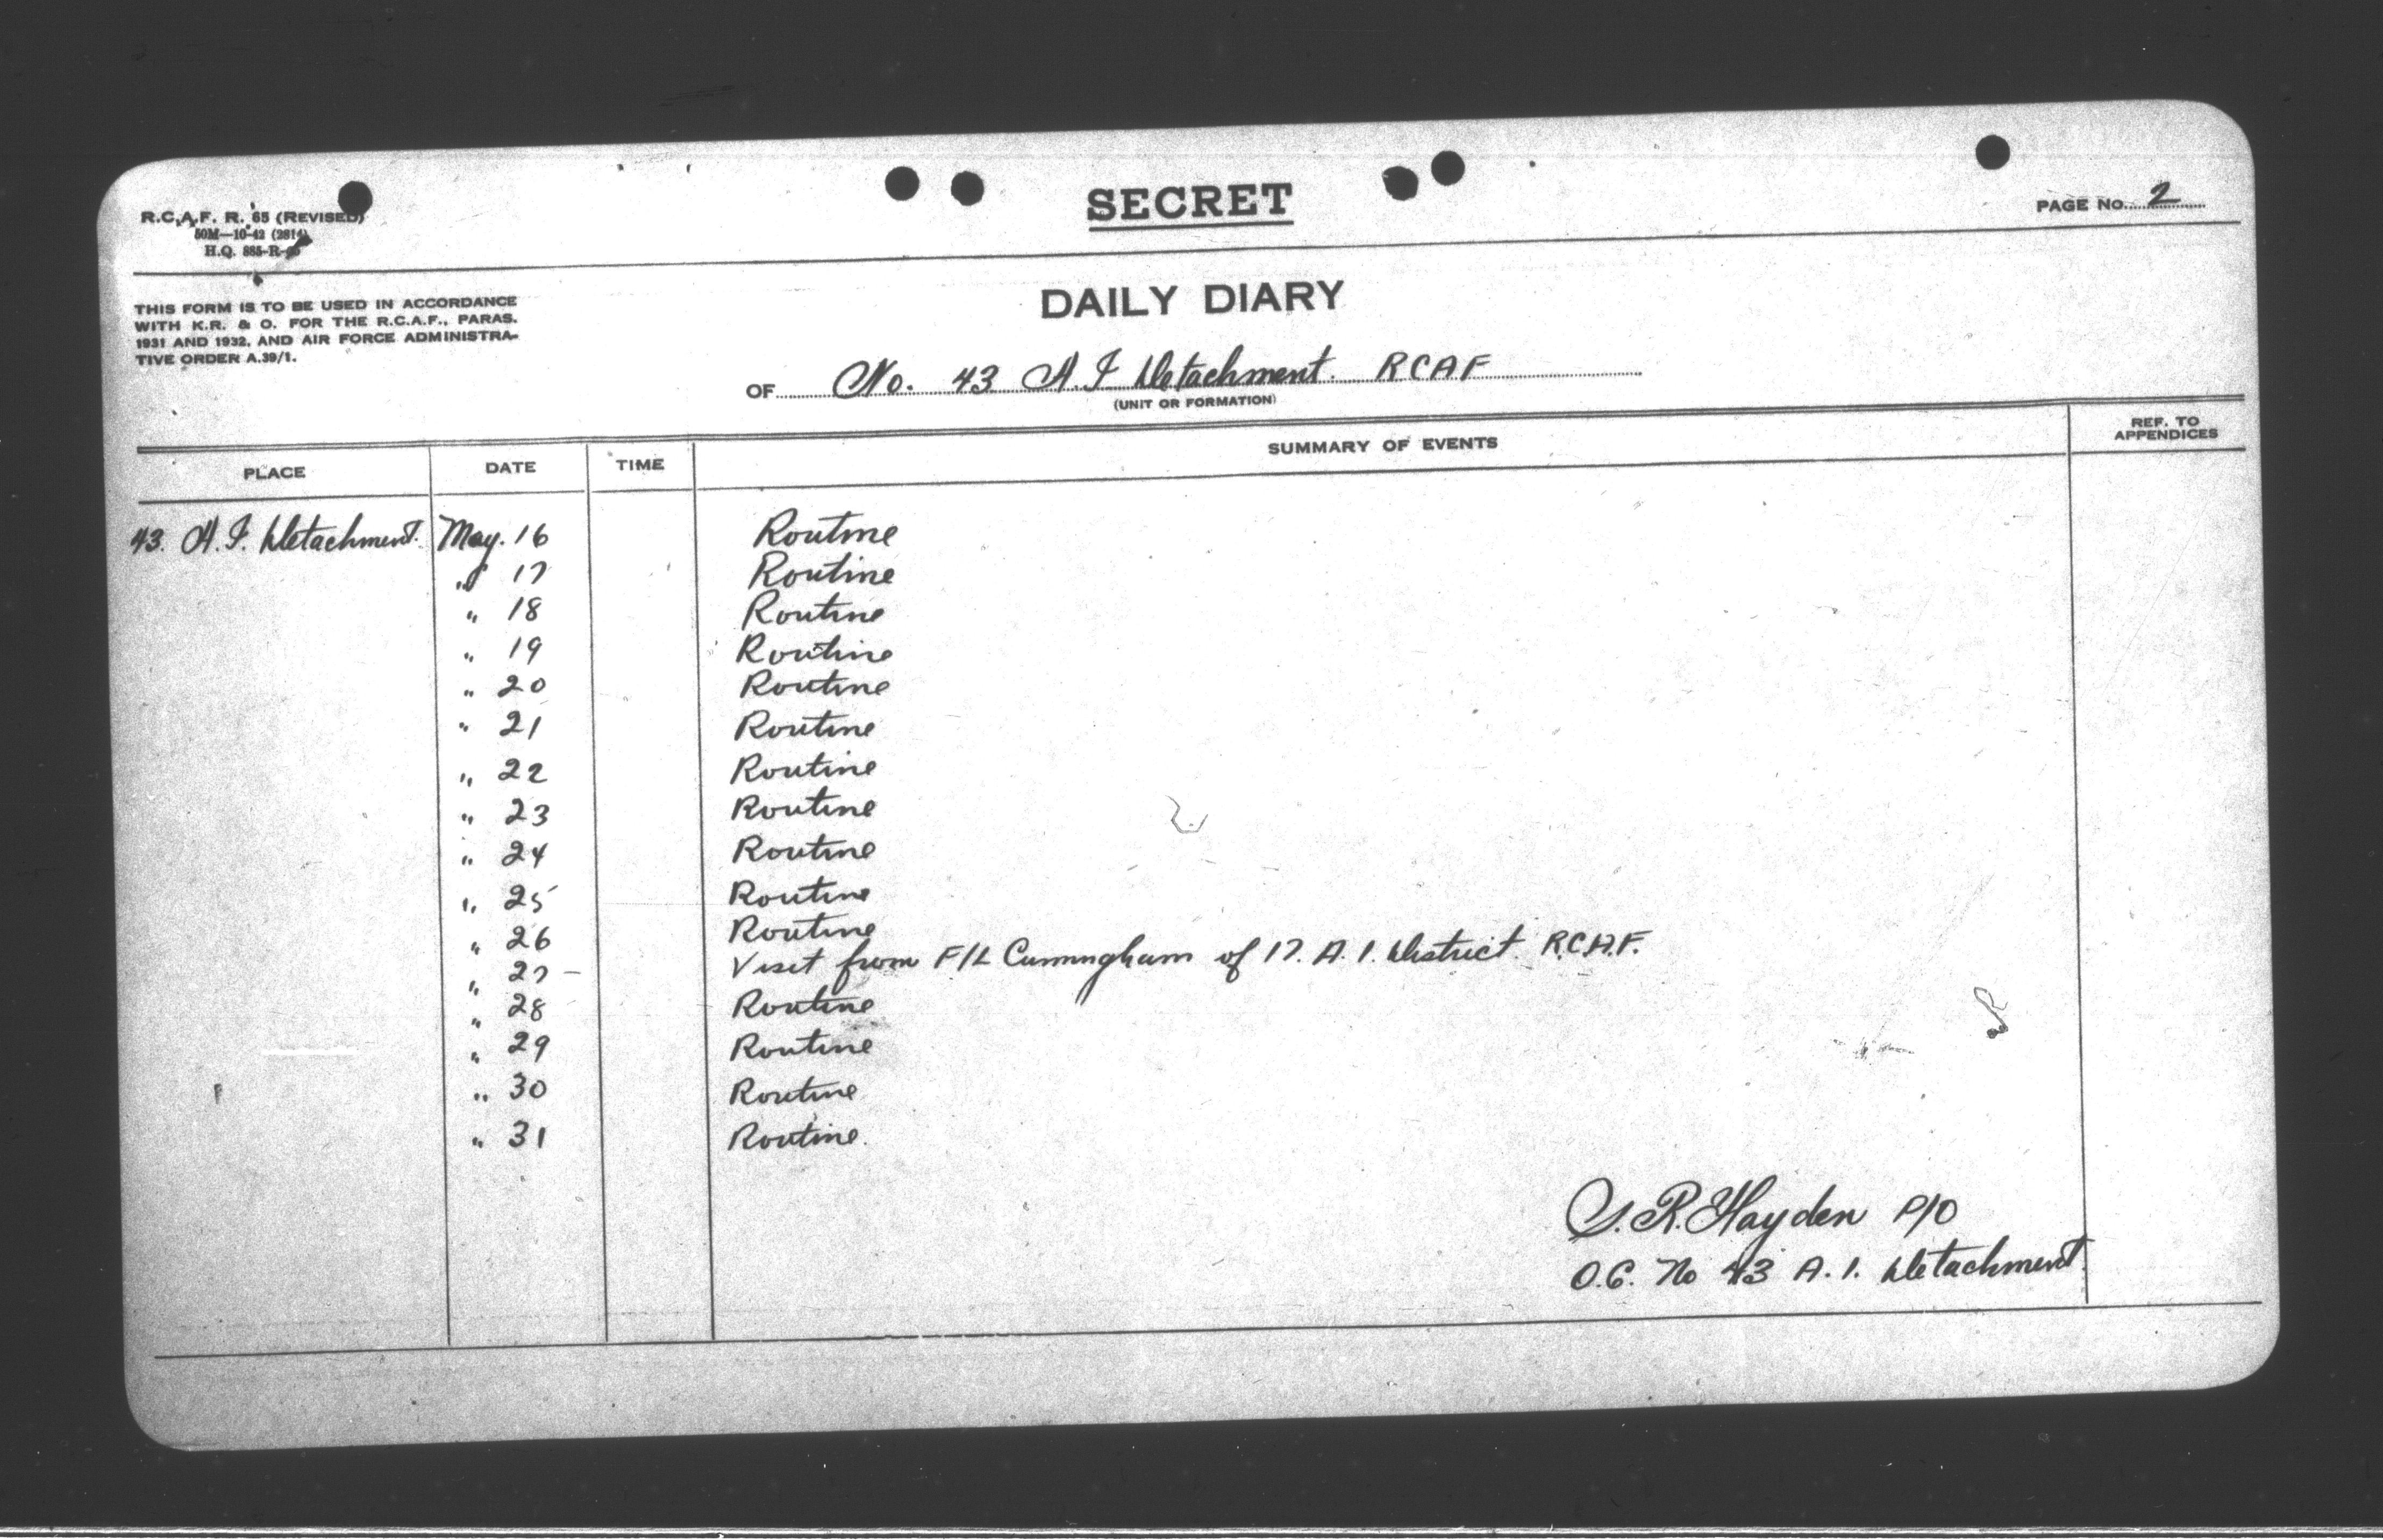 R.C.A.F. R. 65 (REVISED)
50M—10-42 (2814)
H.Q. 885-R-65
SECRET
PAGE No. 2
THIS FORM IS TO BE USED IN ACCORDANCE
WITH K.R. & O. FOR THE R.C.A.F., PARAS.
1931 AND 1932, AND AIR FORCE ADMINISTRA-
TIVE ORDER A.39/1.
DAILY DIARY
OF No. 43 A.I Detachment. RCAF
(UNIT OR FORMATION)
PLACE DATE TIME SUMMARY OF EVENTS REF. TO APPENDICES
43. A.I. Detachment. May. 16 Routine
" 17 Routine
" 18 Routine
" 19 Routine
" 20 Routine
" 21 Routine
" 22 Routine
" 23 Routine
" 24 Routine
" 25 Routine
" 26 Routine
" 27 – Visit from F/L Cunningham of 17. A.I. District. R.C.A.F.
" 28 Routine
" 29 Routine
" 30 Routine
" 31 Routine.
R. Hayden P/O
O.C. No 43 A.I. Detachment.